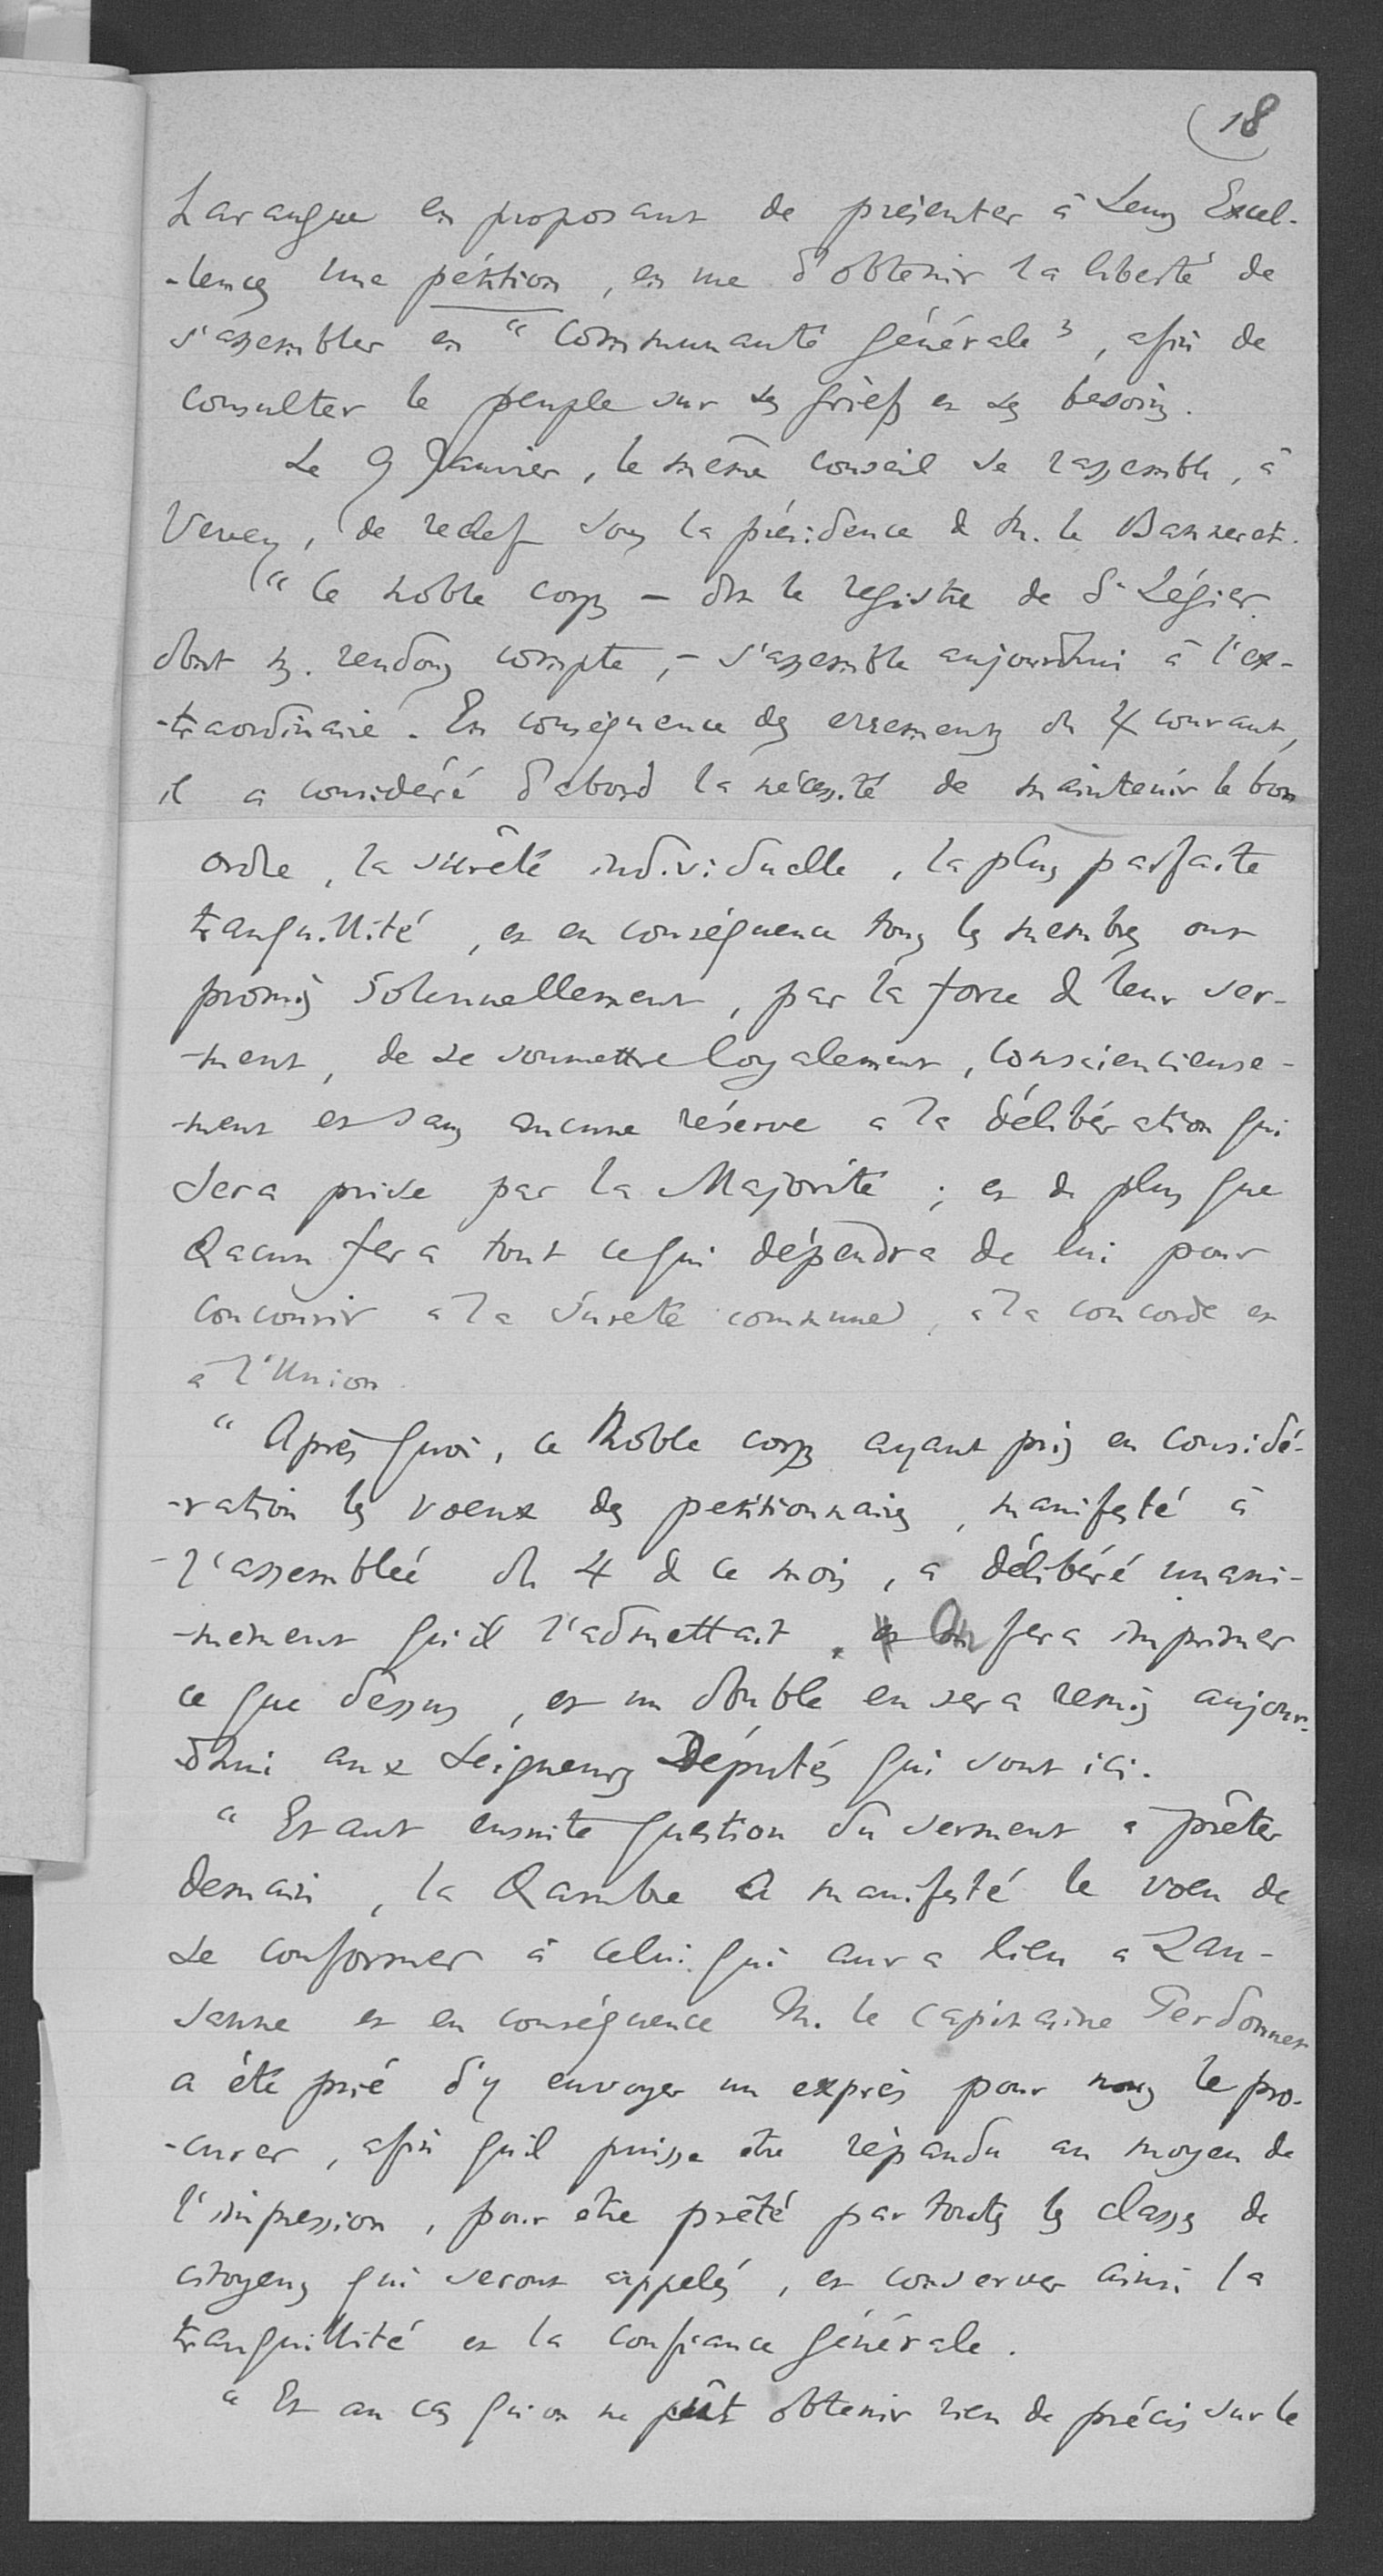 18
harangue en proposant de présenter à Leurs Excel-
-lences une pétition, en vue d'obtenir la liberté de
s'assembler en "Communauté générale", afin de
consulter le peuple sur ses griefs et ses besoins.
Le 9 Janvier, le même conseil se rassemble, à
Vevey, de rechef sous la présidence de M. le Banneret.
"Ce noble corps – dit le registre de St Légier
dont n. rendons compte, – s'assemble aujourdhui à l'ex-
-traordinaire. En conséquence des errements du 4 courant,
il a considéré d'abord la nécessité de maintenir le bon
ordre, la sûreté individuelle, la plus parfaite
tranquillité, et en conséquence tous les membres ont
promis solennellement, par la force de leur ser-
-ment, de se soumettre loyalement, consciencieuse-
-ment et sans aucune réserve à la délibération qui
sera prise par la Majorité ; et de plus que
chacun fera tout ce qui dépendra de lui pour
concourir à la sureté commune, à la concorde et
à l'Union.
"Après quoi, ce Noble corps ayant pris en considé-
-ration les voeux des petitionnaires, manifesté à
-l'assemblée du 4 de ce mois, a délibéré unani-
-mement qu'il l'admettait. On fera imprimer
ce que dessus, et un double en sera remis aujour-
dhui aux Seigneurs Députés qui sont ici.
"Etant ensuite question du serment à prêter
demain, la Chambre a manifesté le voeu de
se conformer à celui qui aura lieu à Lau-
sanne et en conséquence M. le capitaine Perdonnet
a été prié d'y envoyer un exprès pour nous le pro-
-curer, afin qu'il puisse être répandu au moyen de
l'impression, pour être prêté par toutes les classes de
citoyens qui seront appelés, et conserver ainsi la
tranquillité et la confiance générale.
"Et au cas qu'on ne pût obtenir rien de précis sur le